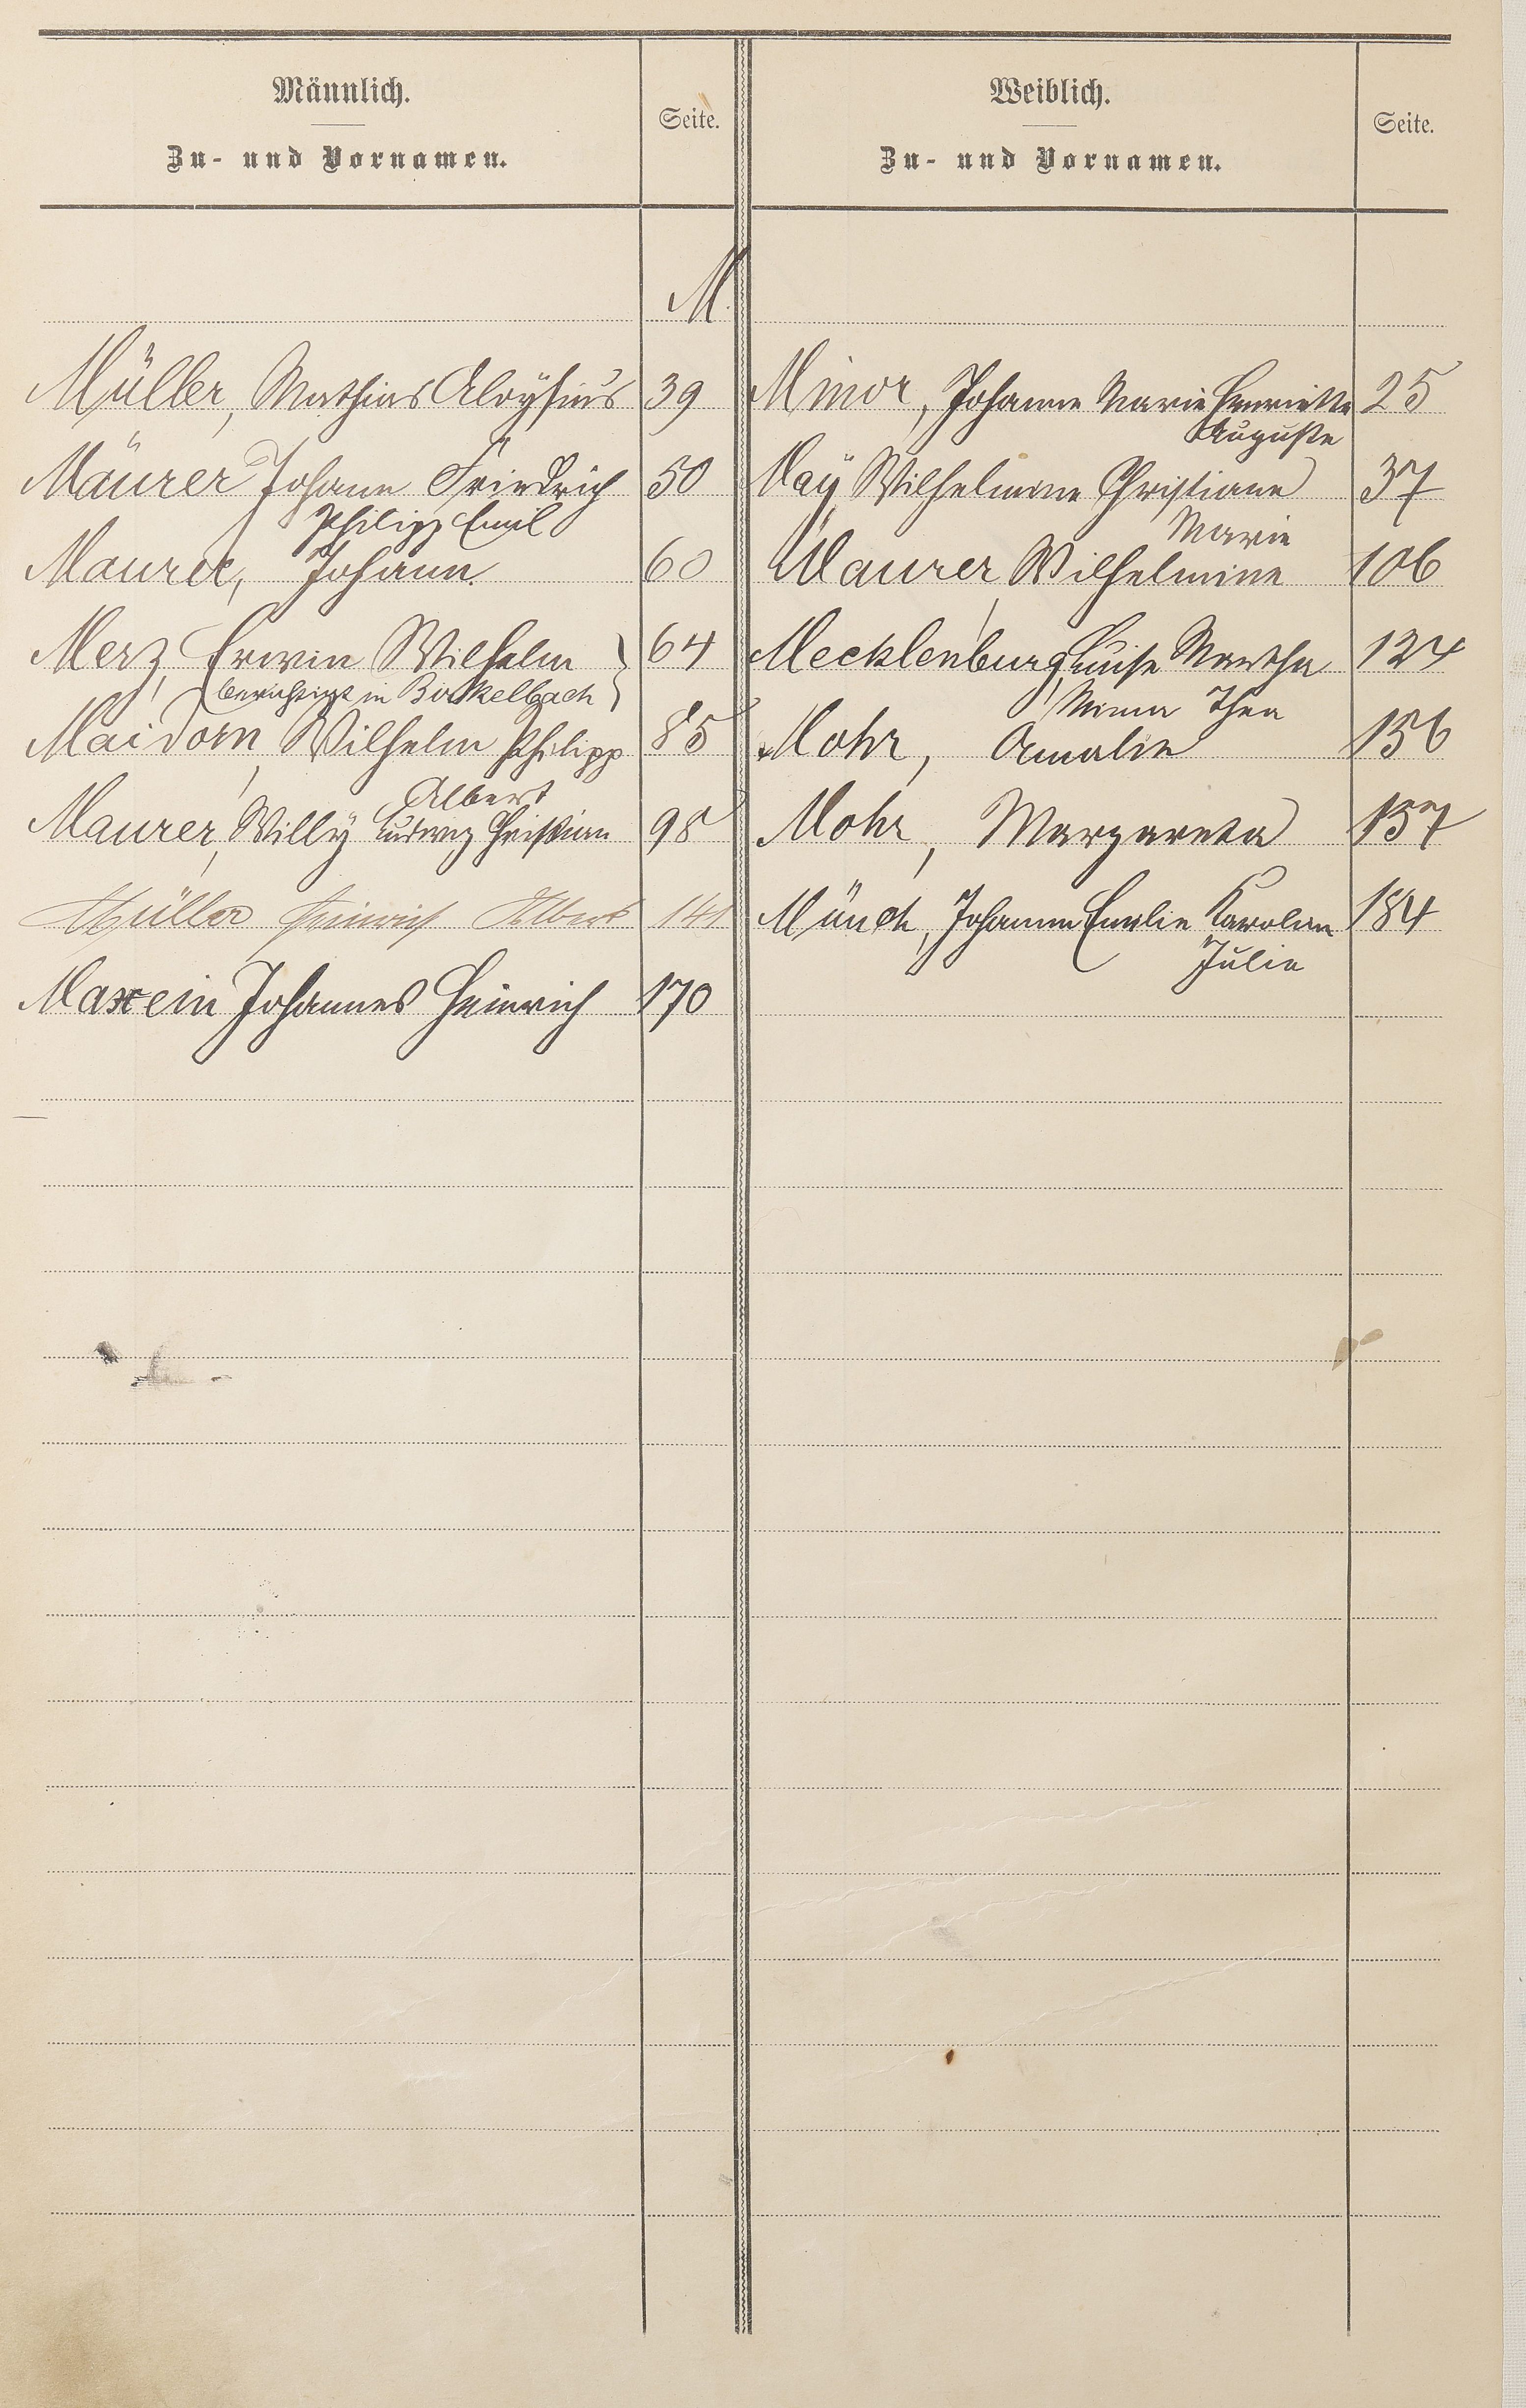 Männlich.
Zu- und Vornamen.
Seite.
Weiblich.
Zu- und Vornamen.
Seite.
M.
Müller, Mathias Aloysius 39
Mäurer Johann Friedrich 50
Philipp Emil
Maurer, Johann. 60
Merz, Erwin Wilhelm 64
berichtigt in Birkelbach
Maidorn, Wilhelm Philipp 85
Albert
Maurer, Willy Ludwig Christian 98
Müller Heinrich Albert 141
Maxein Johannes Heinrich 170
Minor, Johanne Marie Henriette 25
Auguste
May Wilhelmine Christiane 37
Marie
Maurer, Wilhelmine 106
Mecklenburg, Luise Martha 124
Minna Thea
Mohr, Amalie 156
Mohr, Margareta 157
Münch, Johanna Emilie Karoline 184
Julie